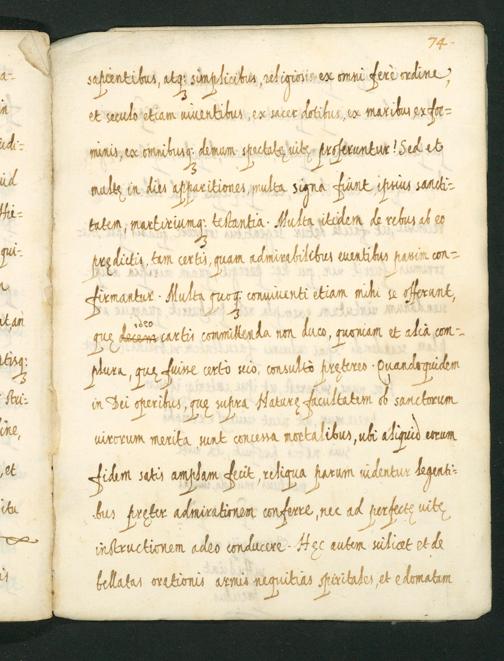 74.
sapientibus, atq; simplicibus, religiosis ex omni ferè ordine,
et seculo etiam uiuentibus, ex sacerdotibus, ex maribus ex foe=
minis, ex omnibusq; demum spectatę uitę proferuntur! Sed et
multę in dies apparitiones, multa signa fiunt ipsius sancti=
tatem, martiriumq; testantia. Multa itidem de rebus ab eo
prędictis, tam certis, quam admirabilibus euentibus passim con=
firmantur. Multa quoq; conuiuenti etiam mihi se offerunt,
quę ideo cartis committenda non duco, quoniam et alia com=
plura, quę fuisse certò scio, consultò prętereo. Quandoquidem
in Dei operibus, quę supra Naturę facultatem ob sanctorum
uirorum merita sunt concessa mortalibus, ubi aliquid eorum
fidem satis amplam fecit, reliqua parum uidentur legenti=
bus pręter admirationem conferre, nec ad perfectę uitę
instructionem adeo conducere. Hęc autem scilicet et de
bellatas orationis armis nequitias spiritales, et edomatam